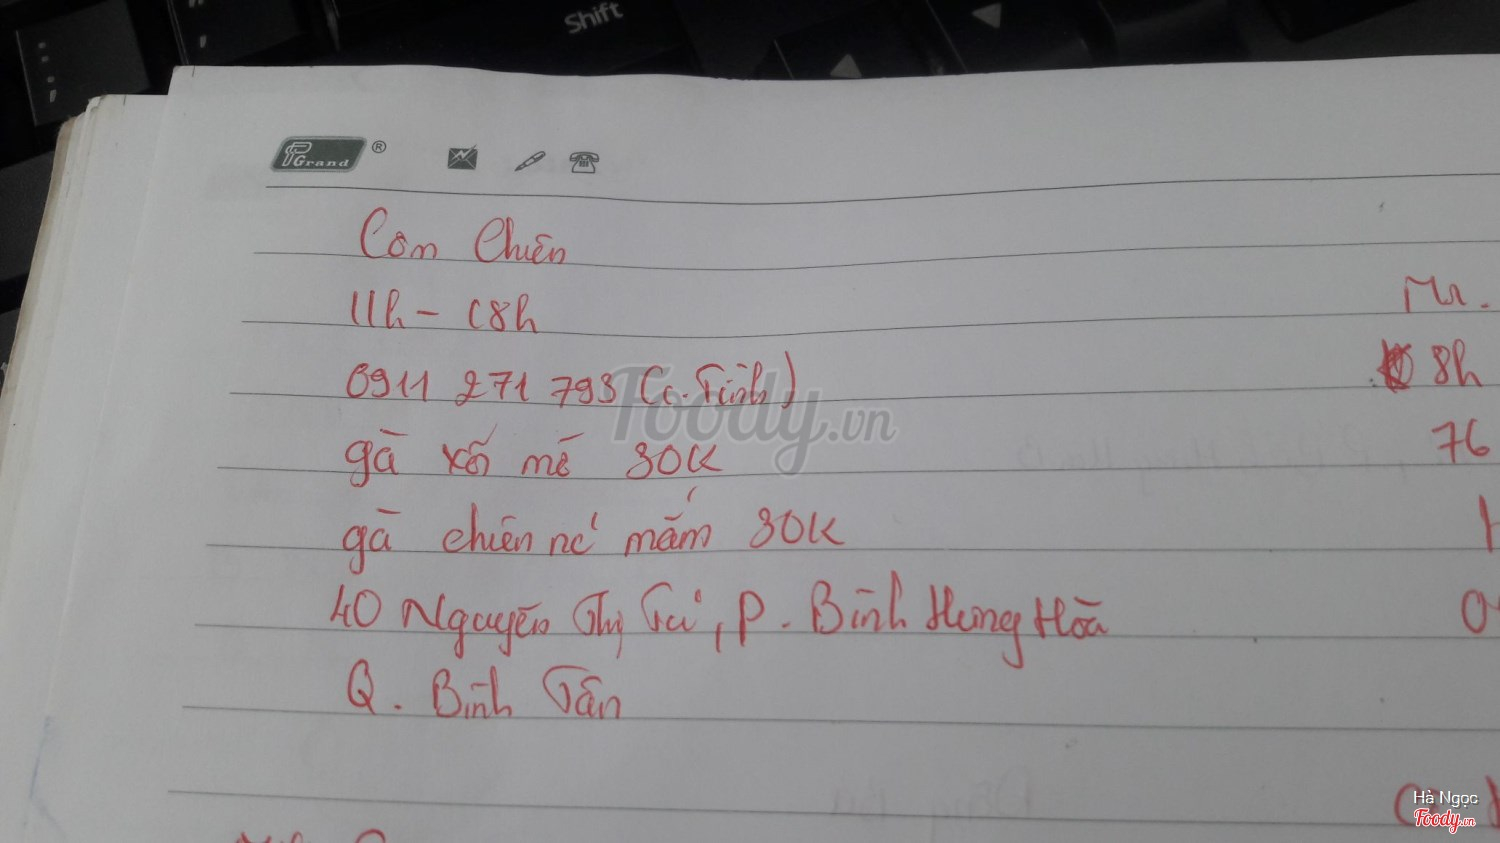 Shift
PGrand ®
Cơm Chiên
11h - 18h
0911 271 793 (c.Tình)
gà xối mỡ 30K
gà chiên nc' mắm 30K
40 Nguyễn Thị Tú, P. Bình Hưng Hòa
Q. Bình Tân
Mr.
8h
76
Foody.vn
Hà Ngọc
Foody.vn